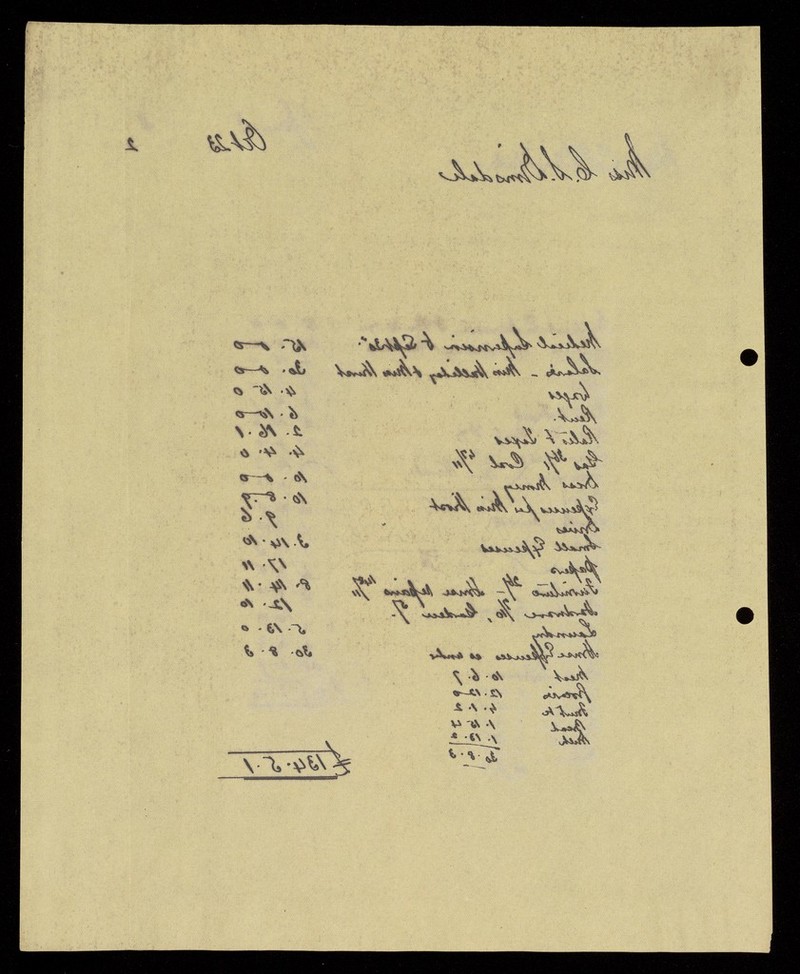 Oct 23 2
Miss C. S. Dimsdale
Medical Supervision to Sept 30th 15. 0 0
Salaries - Miss Halliday & Miss Hurst 30. 0 0
Wages 4. 15 0
Rent. 6. 10 0
Rates & Taxes 2. 16. 1
Gas Coal 4. 4. 0
Dress Money 10. 0 0
Expenses per Miss Hurst 10. 8. 9
Drives 9. 6
Small Expenses 3. 14. 10
Papers 17. 11
Furniture House repairs 8. 14. 11
Hardware Garden 12. 10
Laundry 5. 13. 0
House Expenses as under 30. 8. 3
Meat 10. 6. 7
Groceries 12. 12 0
Fruit &c 4. 1. 2
Bread 1. 15 4
Milk 1. 13. 2
30. 8. 3
£134. 5. 1